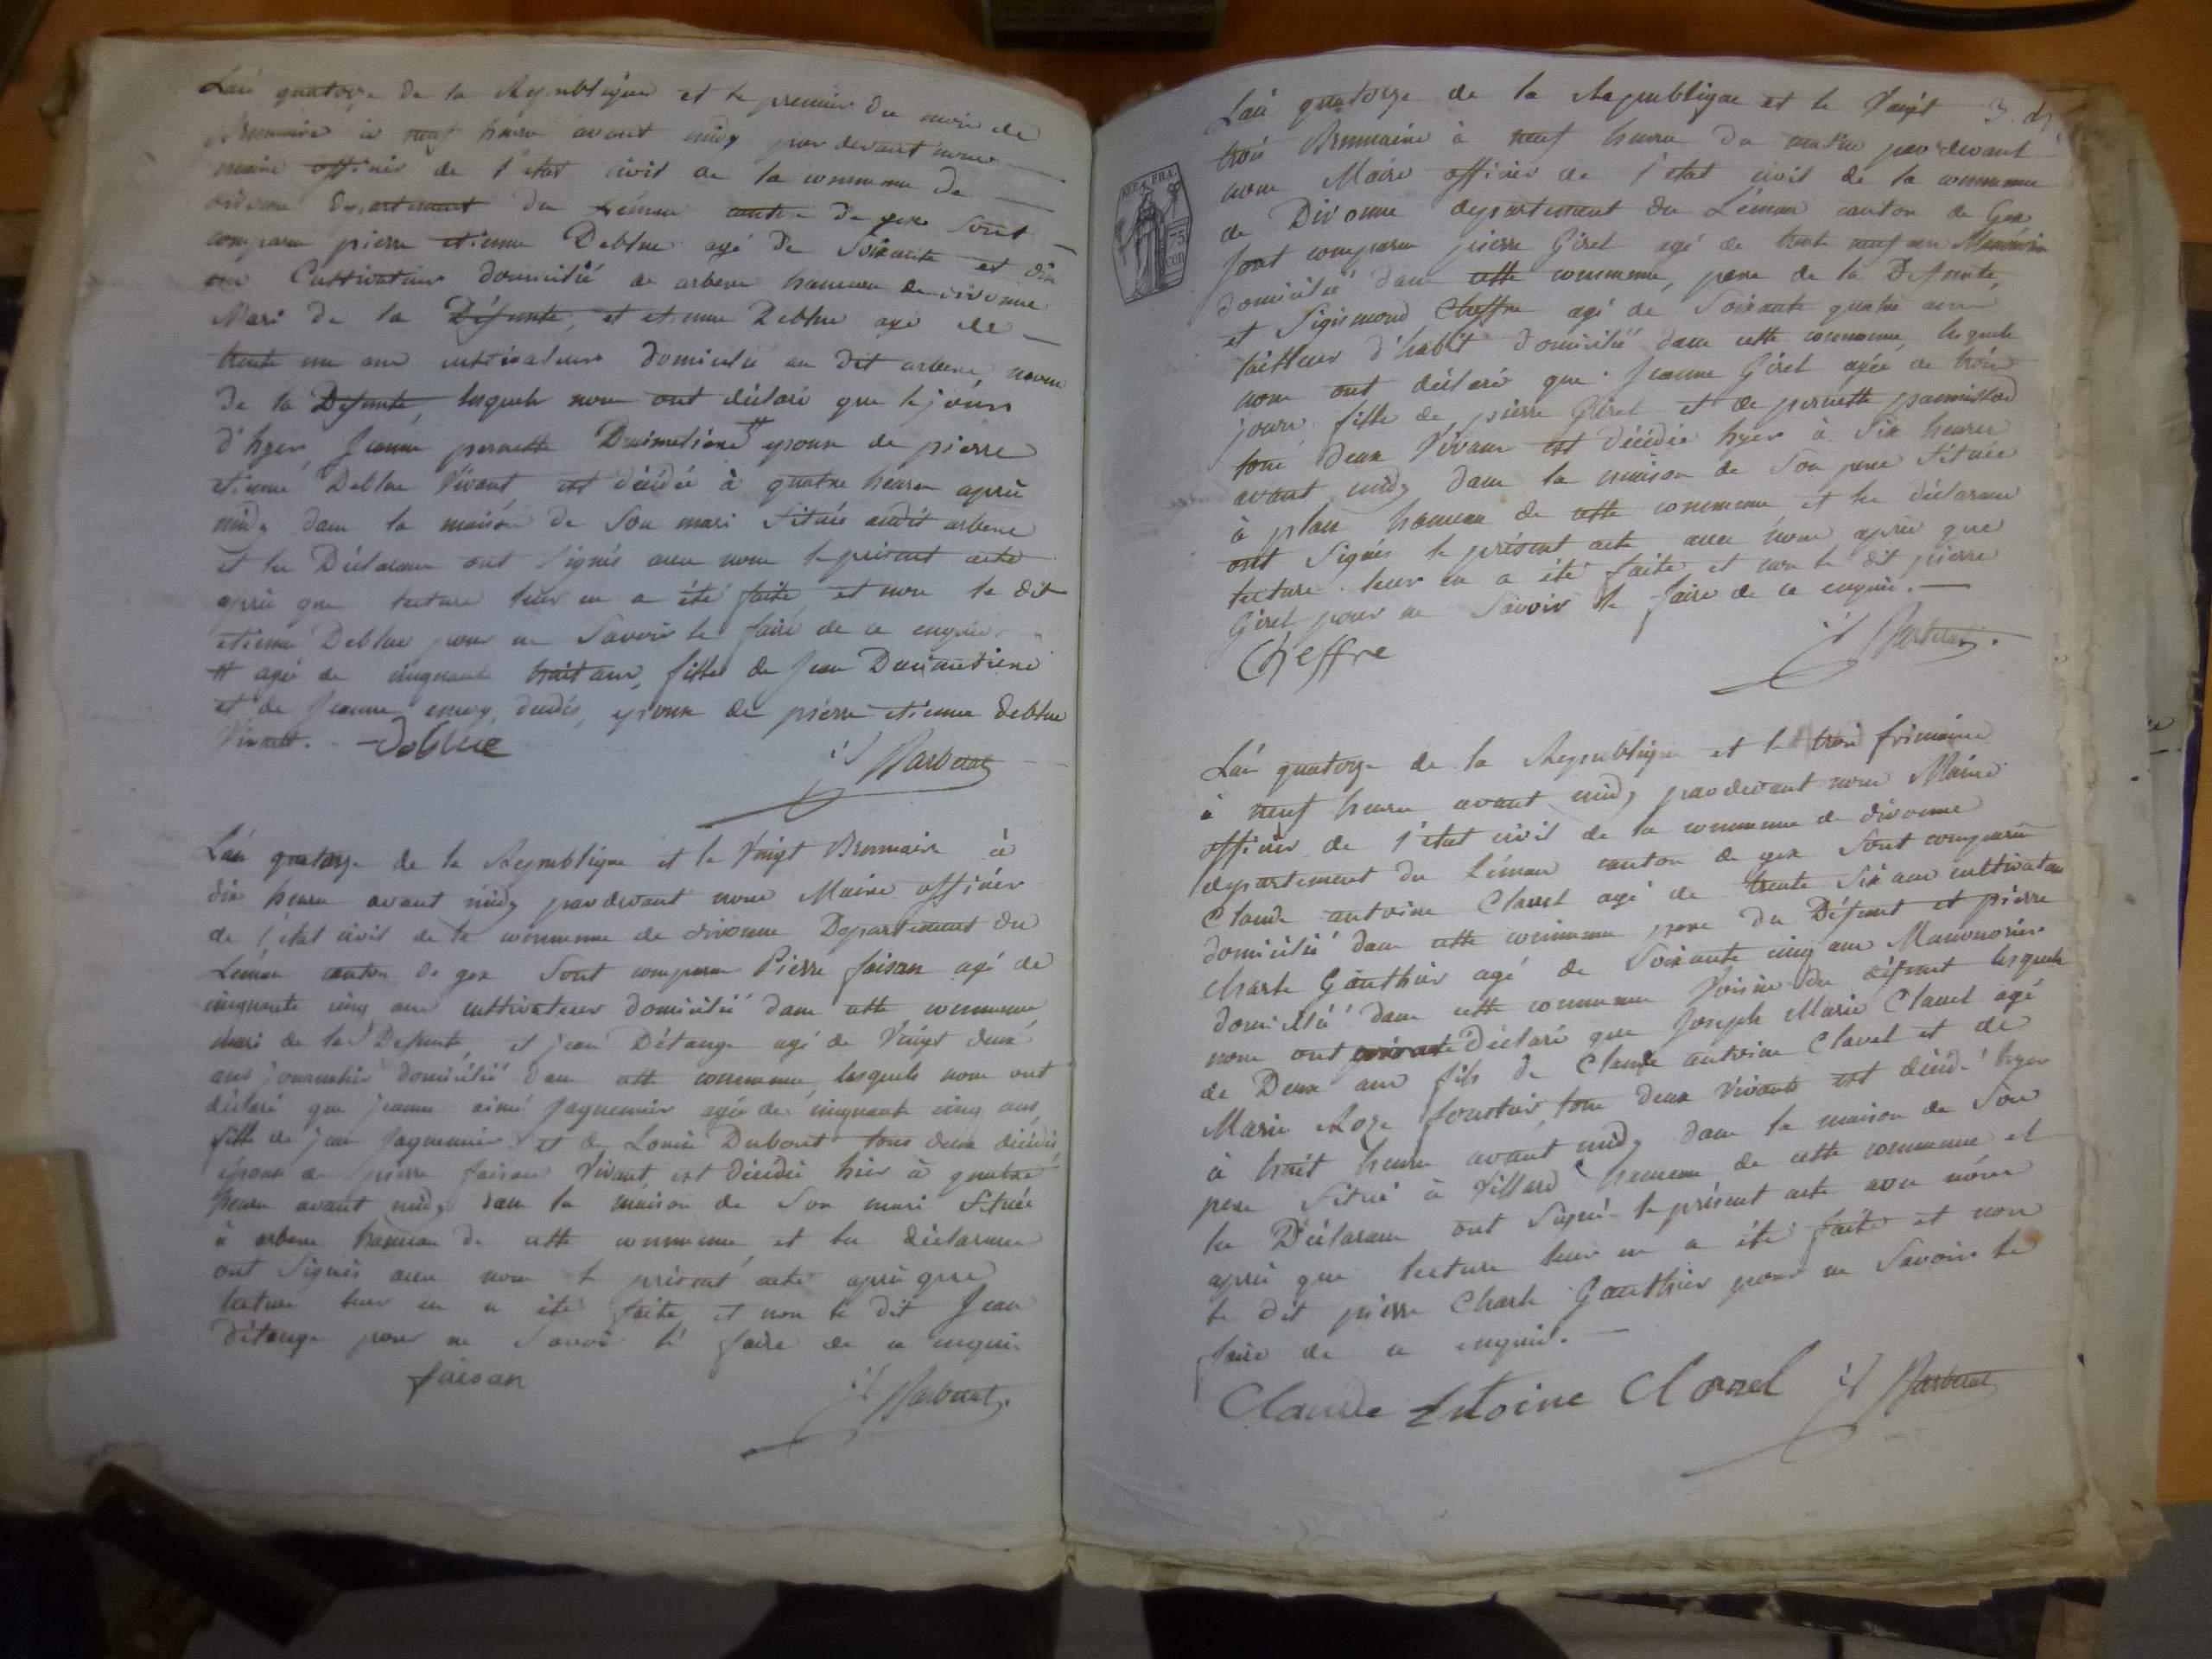 L'an quatorze de la Republique et le premier du mois de
Brumaire à neuf heures avant midy par devant nous
maire officier de l'etat civil de la commune de
divonne departement du Léman canton de gex sont
comparu pierre etienne Deblue agé de Soixante et dix
ans Cultivateur domicilié a arbere hameau de divonne
Mari de la Défunte, et etienne Deblue agé de
trente un ans cultivateur domicilié au dit arbere, neveu
de la Défunte, lesquels nous ont déclaré que le jour
d'hyer, Jeanne pernette epouse de pierre
etienne Deblue Vivant est décédée à quatre heures après
midy dans la maison de Son mari Située audit arbere
et les Déclarans ont Signés avec nous le présent acte
après que lecture leur en a été faite, et non le dit
etienne Deblue pour ne Savoir le faire de ce enquis.
# agée de cinquante huit ans, fille de Jean
et de Jeanne emery, decedés, epouse de pierre etienne deblue
Vivant. Deblue
Barberat
L'an quatorze de la Republique et le Vingt Brumaire à
dix heures avant midy pardevant nous Maire officier
de l'état civil de la commune de divonne Departement du
Léman canton de gex Sont comparu Pierre faisan agé de
cinquante cinq ans cultivateur domicilié dans cette commune
mari de la Defunte, et jean Détange agé de Vingt deux
ans journalier domicilié dans cette commune, lesquels nous ont
déclaré que jeanne aimé Jaquemier agée de cinquante cinq ans,
fille de jean Jaquemier et de Louise Dubout tous deux décédés
épouse de pierre faisan Vivant, est décédée hier à quatre
heures avant midy dans la maison de Son mari Située
à arbere hameau de cette commune, et les déclarans
ont Signés avec nous le présent acte après que
lecture leur en a été faite, et non le dit Jean
Détange pour ne Savoir le faire de ce enquis
faisan
Barberat
L'an quatorze de la Republique et le Vingt 3.
trois Brumaire à neuf heures du matin pardevant
nous Maire officier de l'etat civil de la commune
de Divonne departement du Léman canton de Gex
Sont comparu pierre Girel agé de trente neuf ans
domicilié dans cette commune, pere de la Défunte,
et Sigismond Cheffre agé de Soixante quatre ans
tailleur d'habit domicilié dans cette commune, lesquels
nous ont déclaré que Jeanne Girel agée de trois
jours, fille de pierre Girel et de pernette
tous deux Vivans est décédée hyer à Six heures
avant midy dans la maison de Son pere Située
à plan hameau de cette commune et les déclarans
ont Signés le présent acte avec nous après que
lecture leur en a été faite et non le dit pierre
Girel pour ne Savoir le faire de ce enquis.
Cheffre
Barberat
REP. FRA.
75
cen
L'an quatorze de la Republique et le trois frimaire
à neuf heures avant midy pardevant nous Maire
officier de l'etat civil de la commune de divonne
departement du Léman canton de gex Sont comparu
Claude antoine Clavel agé de trente Six ans cultivateur
domicilié dans cette commune pere du Défunt et pierre
charle Gauthier agé de Soixante cinq ans Manouvrier
domicilié dans cette commune Voisin du défunt lesquels
nous ont Déclaré que Joseph Marie Clavel agé
de Deux ans fils de Claude antoine Clavel et de
Marie Roze tous deux Vivants est décédé hyer
à huit heures avant midy dans la maison de Son
pere Située à Villard hameau de cette commune et
les Déclarans ont Signé le présent acte avec nous
après que lecture leur en a été faite et non
le dit pierre Charle Gauthier pour ne Savoir le
faire de ce enquis.
Claude Entoine Clavel
Barberat